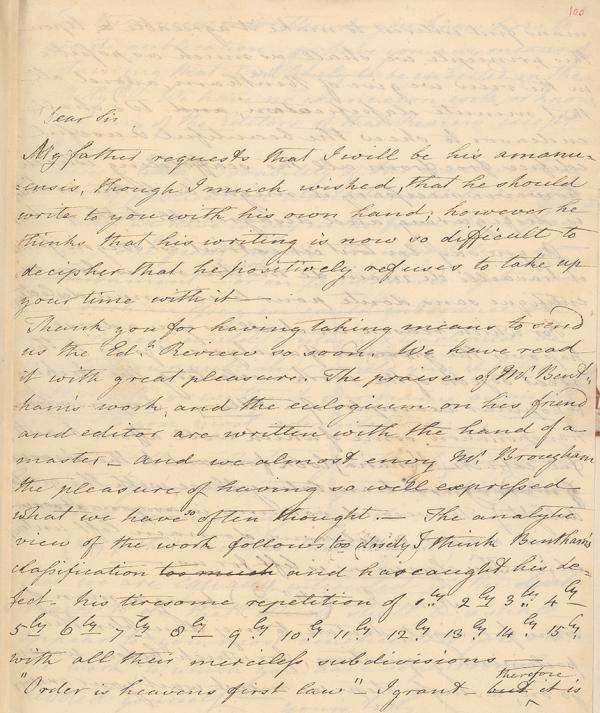 100
Dear Sir
My father requests that I will be his amanu-
-ensis, though I much wished, that he should
write to you with his own hand; however he
thinks that his writing is now so difficult to
decipher that he positively refuses to take up
your time with it —
Thank you for having taking means to send
us the Edn. Review so soon. We have read
it with great pleasure. The praises of Mr. Bent-
ham's work, and the eulogium on his friend
and editor are written with the hand of a
master — and we almost envy Mr. Brougham
the pleasure of having so well expressed
what we have so often thought. — The analytic
view of the work follows too closely I think Bentham's
classification too much and has caught his de-
fect his tiresome repetition of 1ly 2ly 3ly 4ly
5ly 6ly 7ly 8ly 9ly 10ly 11ly 12ly 13ly 14ly 15ly
with all their merciless subdivisions —
"Order is heavens first law" — I grant — but therefore it is